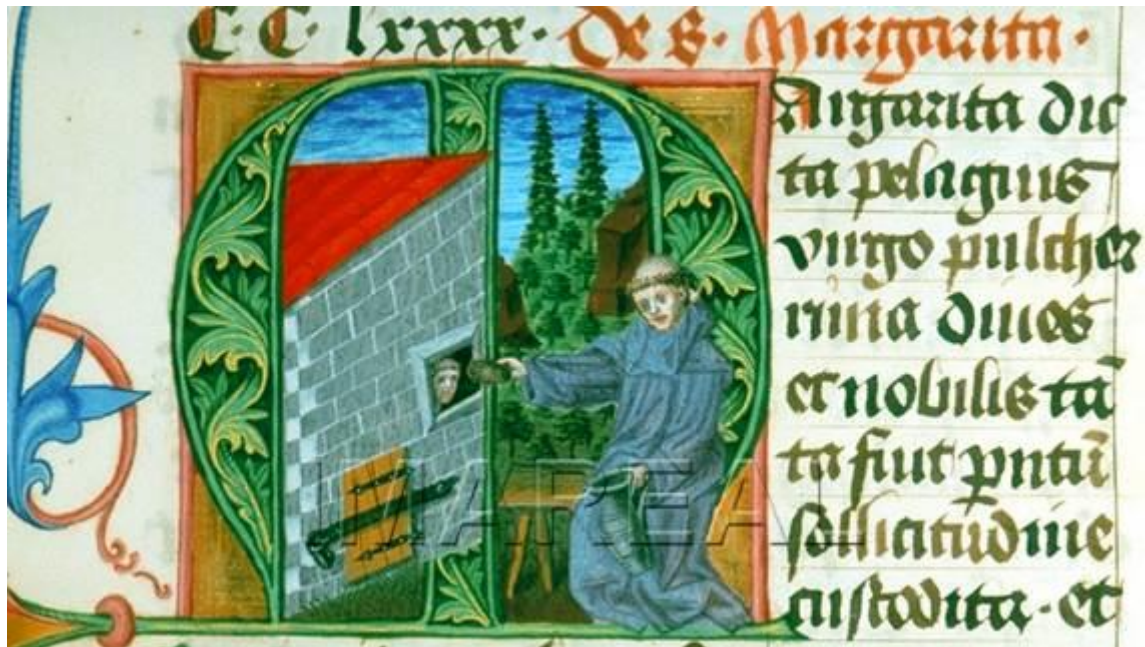 C·C·lxxxx· De S· Margarita·
Margarita dic
ta pelagius
virgo pulcher
rima diues
et nobilis tā
ta fuit pntū
sollicitudine
custodita· et
IMAREAL